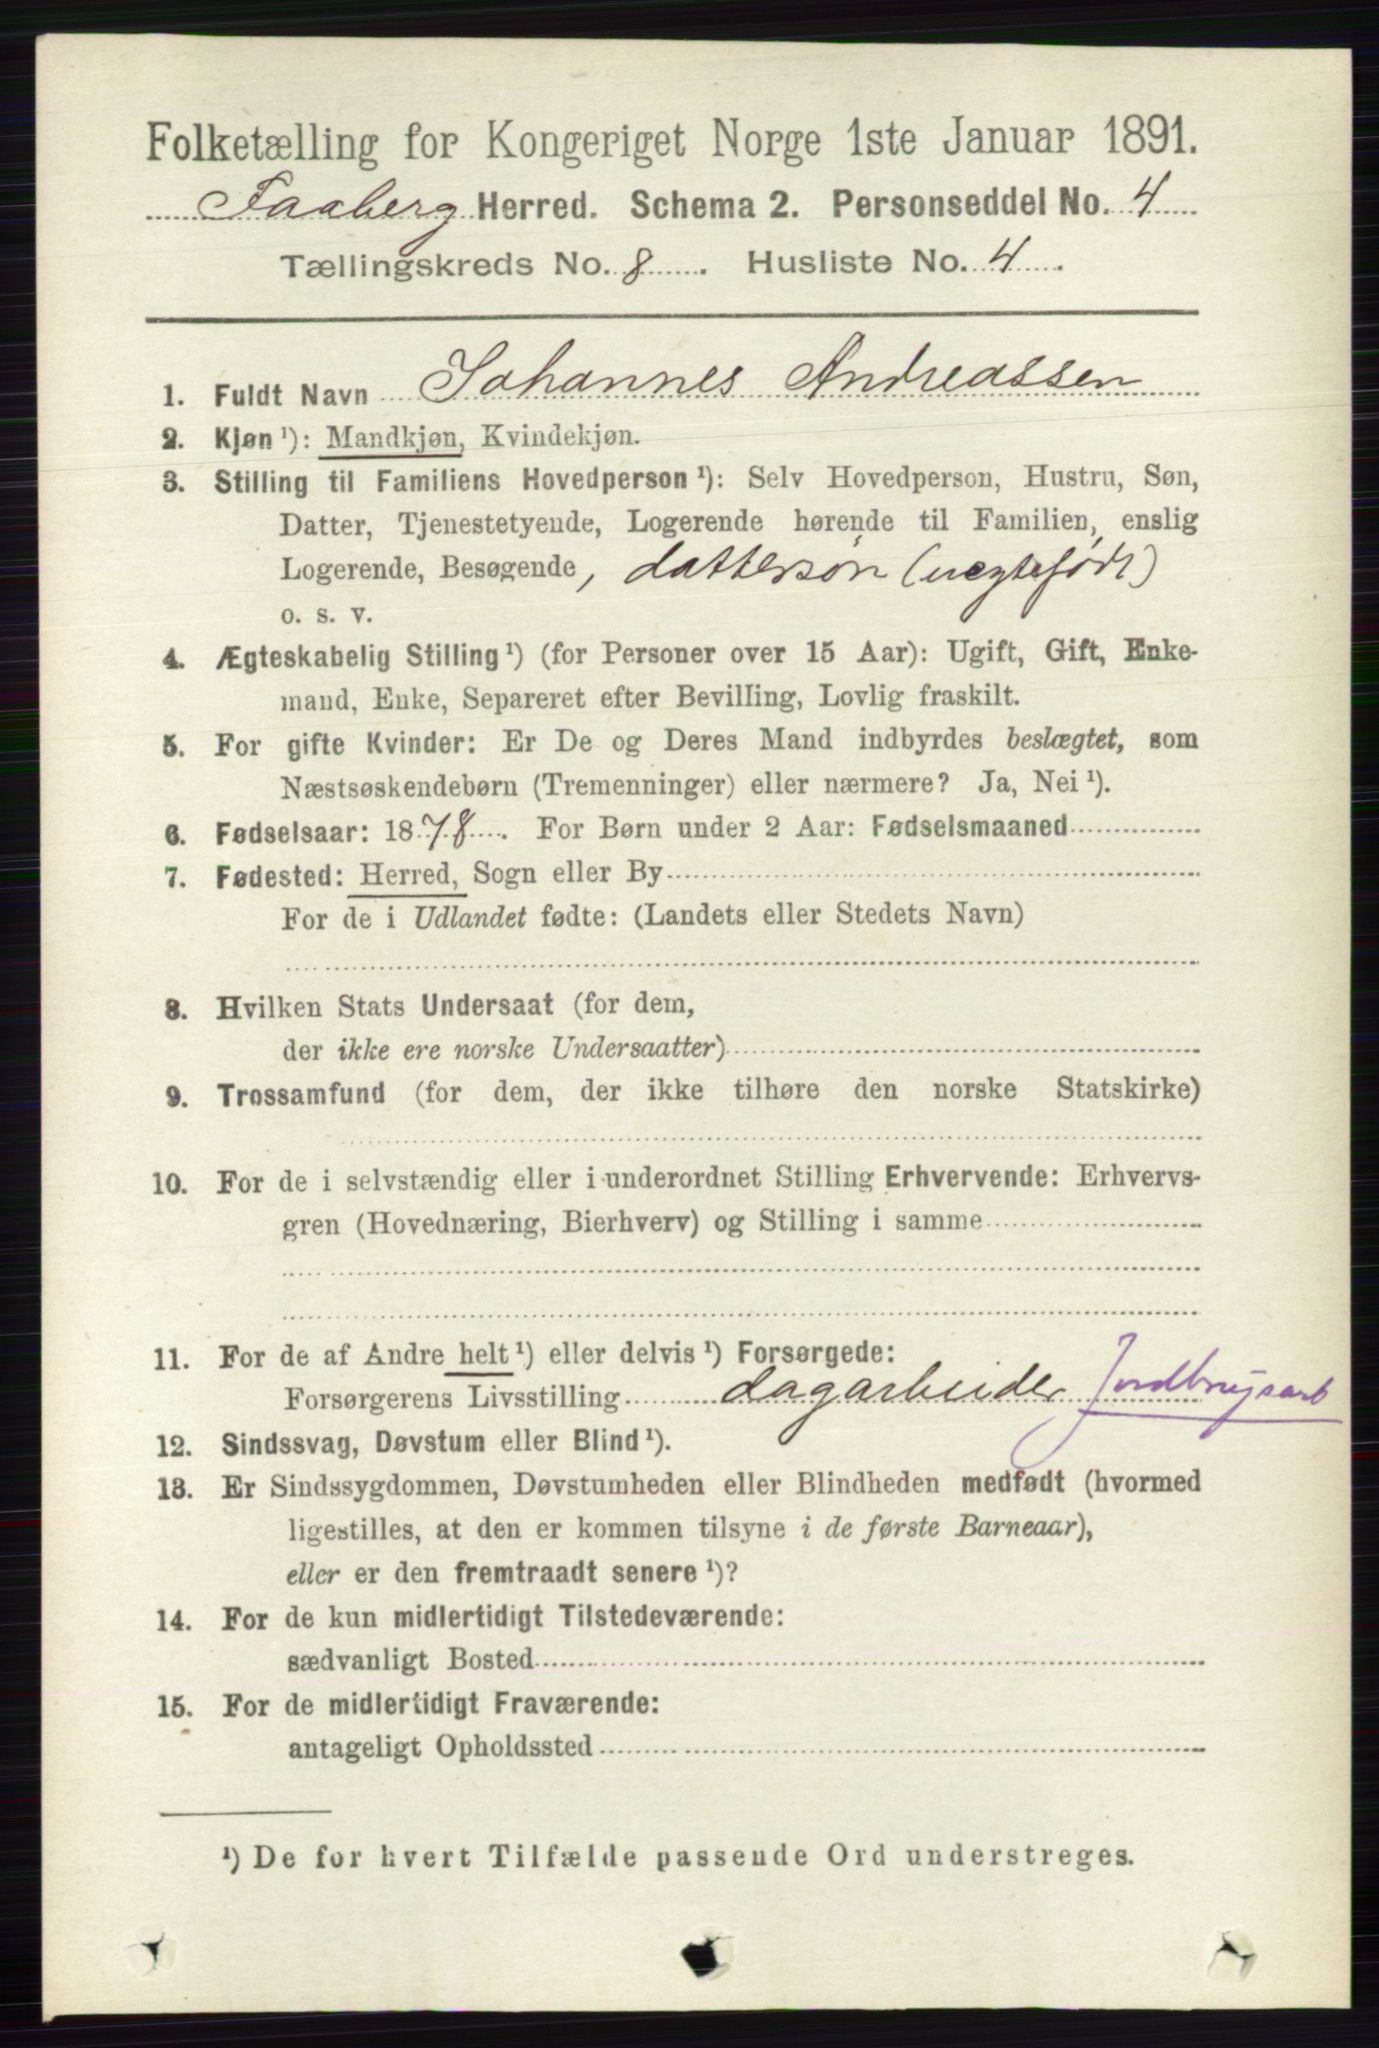 Folketælling for Kongeriget Norge 1ste Januar 1891.
Faaberg Herred. Schema 2. Personseddel No. 4
Tællingskreds No. 8. Husliste No. 4.
1. Fuldt Navn Johannes Andreassen
2. Kjøn ¹): Mandkjøn, Kvindekjøn.
3. Stilling til Familiens Hovedperson ¹): Selv Hovedperson, Hustru, Søn,
Datter, Tjenestetyende, Logerende hørende til Familien, enslig
Logerende, Besøgende, dattersøn (uegtefødt)
o. s. v.
4. Ægteskabelig Stilling ¹) (for Personer over 15 Aar): Ugift, Gift, Enke-
mand, Enke, Separeret efter Bevilling, Lovlig fraskilt.
5. For gifte Kvinder: Er De og Deres Mand indbyrdes beslægtet, som
Næstsøskendebørn (Tremenninger) eller nærmere? Ja, Nei ¹).
6. Fødselsaar: 1878. For Børn under 2 Aar: Fødselsmaaned
7. Fødested: Herred, Sogn eller By
For de i Udlandet fødte: (Landets eller Stedets Navn)
8. Hvilken Stats Undersaat (for dem,
der ikke ere norske Undersaatter)
9. Trossamfund (for dem, der ikke tilhøre den norske Statskirke)
10. For de i selvstændig eller i underordnet Stilling Erhvervende: Erhvervs-
gren (Hovednæring, Bierhverv) og Stilling i samme
11. For de af Andre helt ¹) eller delvis ¹) Forsørgede:
Forsørgerens Livsstilling dagarbeider Jordbrugsarb
12. Sindssvag, Døvstum eller Blind ¹).
13. Er Sindssygdommen, Døvstumheden eller Blindheden medfødt (hvormed
ligestilles, at den er kommen tilsyne i de første Barneaar),
eller er den fremtraadt senere ¹)?
14. For de kun midlertidigt Tilstedeværende:
sædvanligt Bosted
15. For de midlertidigt Fraværende:
antageligt Opholdssted
¹) De for hvert Tilfælde passende Ord understreges.